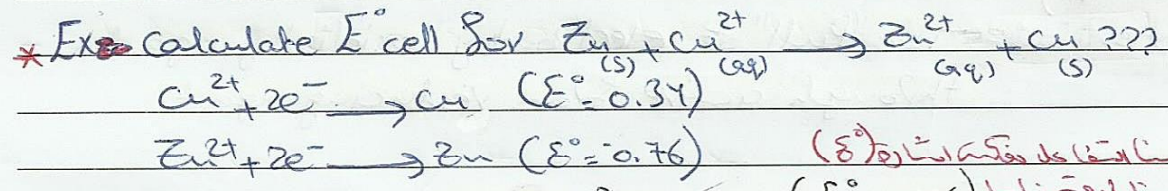 * Ex: Calculate E° cell for Zn(s) + Cu²⁺(aq) → Zn²⁺(aq) + Cu(s) ???
Cu²⁺ + 2e⁻ → Cu (ε° = 0.34)
Zn²⁺ + 2e⁻ → Zn (ε° = -0.76)
(ε°)